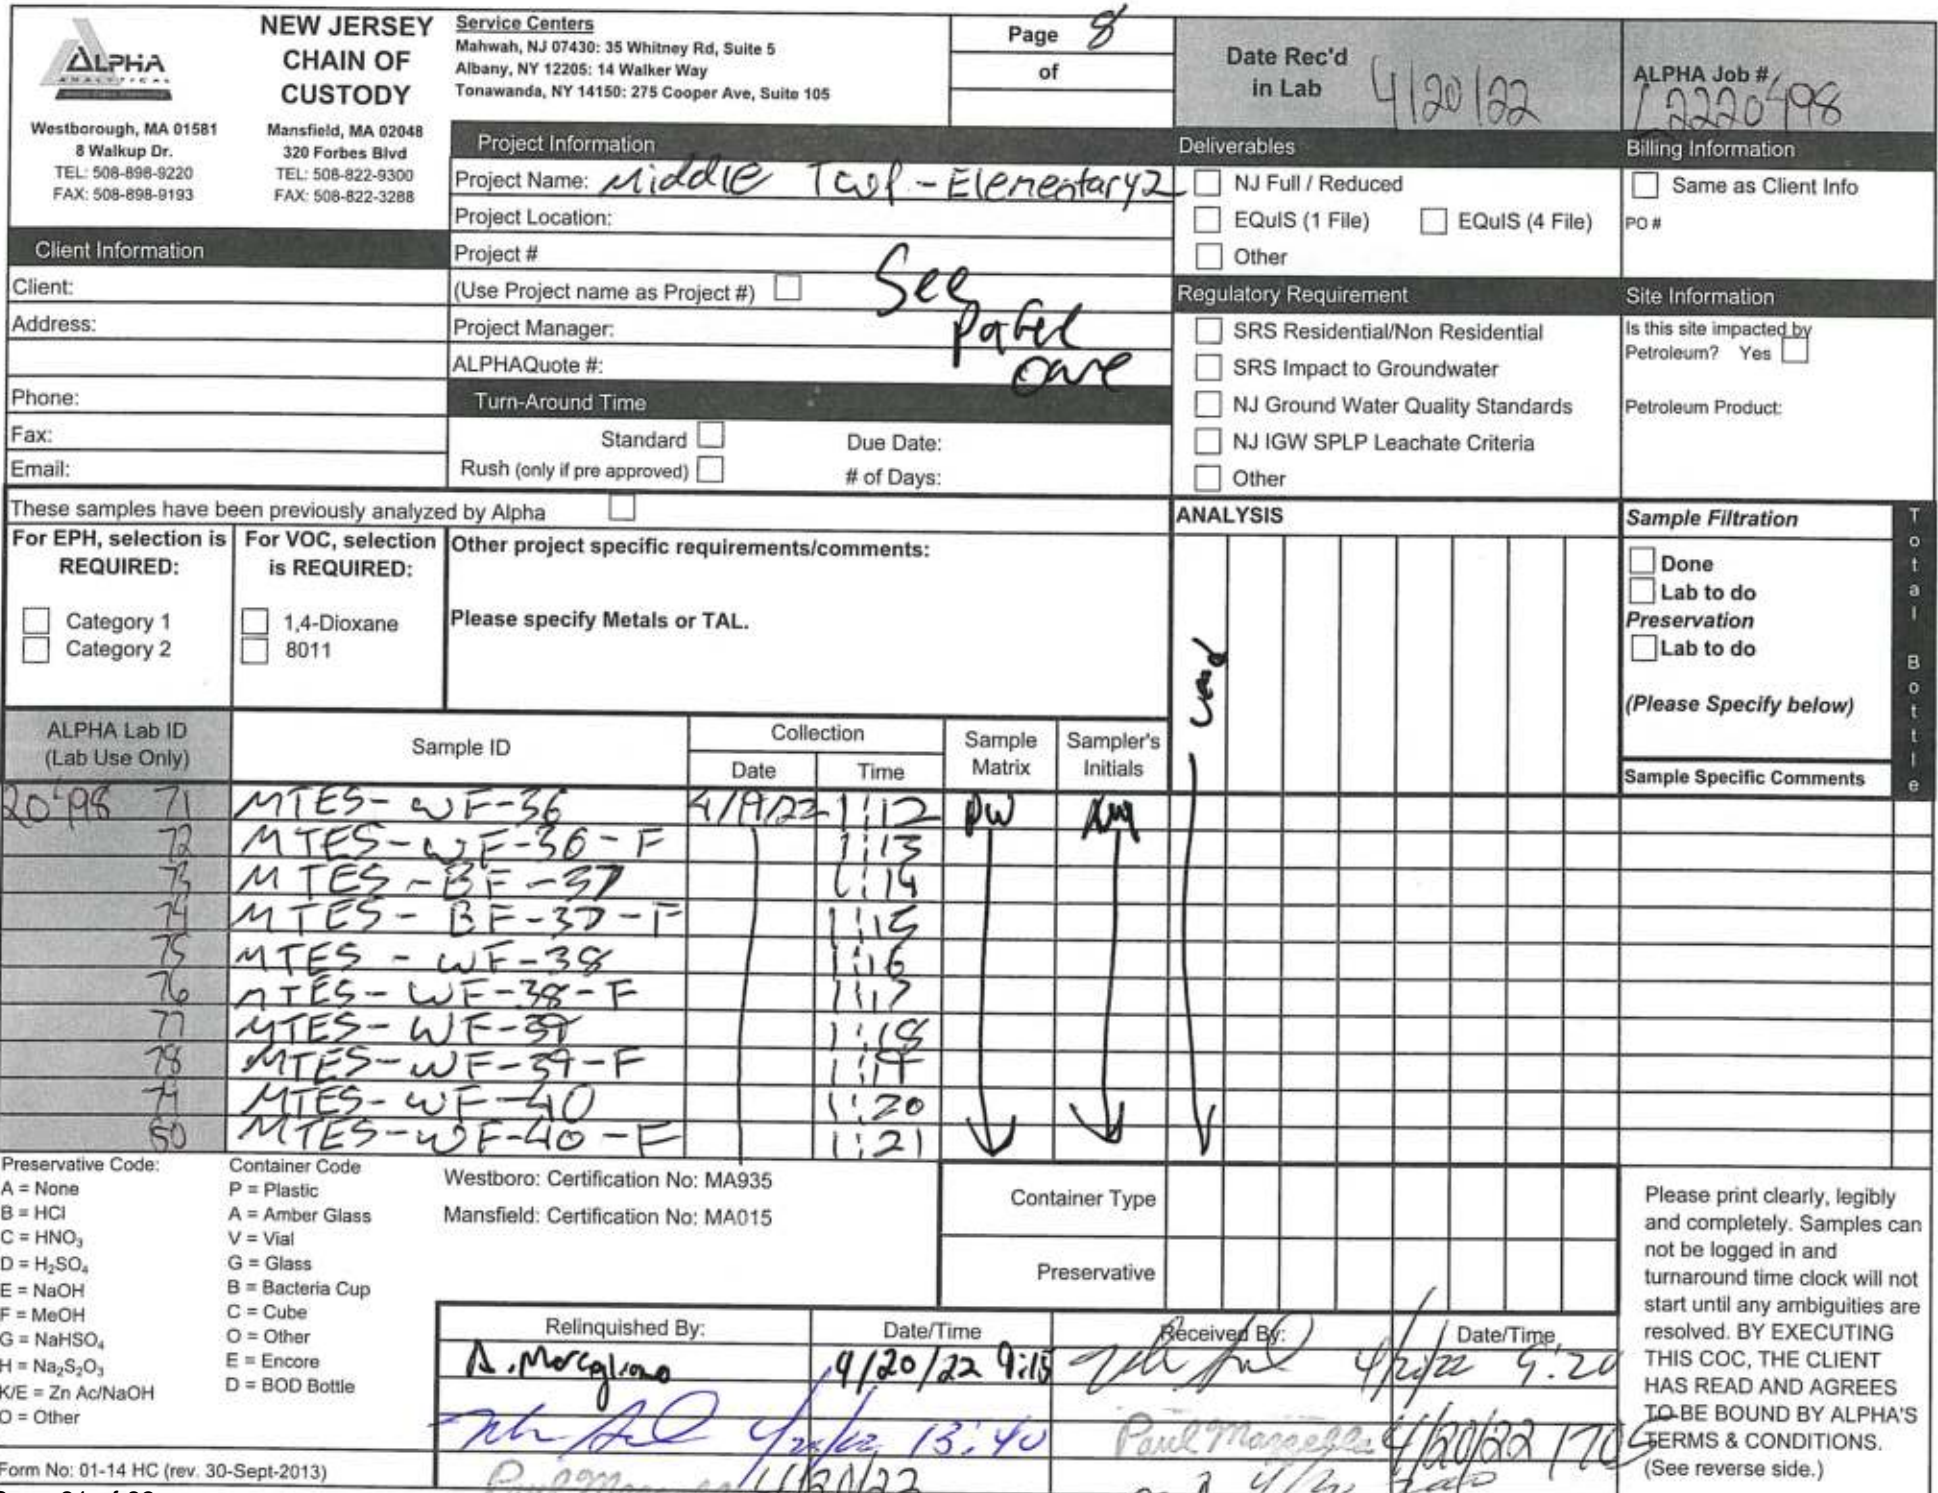 ALPHA
ANALYTICAL
NEW JERSEY
CHAIN OF
CUSTODY
Westborough, MA 01581
8 Walkup Dr.
TEL: 508-898-9220
FAX: 508-898-9193
Mansfield, MA 02048
320 Forbes Blvd
TEL: 508-822-9300
FAX: 508-822-3288
Service Centers
Mahwah, NJ 07430: 35 Whitney Rd, Suite 5
Albany, NY 12205: 14 Walker Way
Tonawanda, NY 14150: 275 Cooper Ave, Suite 105
Page 8
of
Date Rec'd
in Lab 4/20/22
ALPHA Job #
L2220498
Client Information
Client:
Address:
Phone:
Fax:
Email:
Project Information
Project Name: Middle Twp - Elementary 2
Project Location:
Project #
(Use Project name as Project #)
Project Manager:
ALPHAQuote #:
See
Turn-Around Time
Standard
Due Date:
Rush (only if pre approved)
# of Days:
Deliverables
NJ Full / Reduced
EQuIS (1 File) EQuIS (4 File)
Other
Regulatory Requirement
SRS Residential/Non Residential
SRS Impact to Groundwater
NJ Ground Water Quality Standards
NJ IGW SPLP Leachate Criteria
Other
Billing Information
Same as Client Info
PO #
Site Information
Is this site impacted by
Petroleum? Yes
Petroleum Product:
These samples have been previously analyzed by Alpha
For EPH, selection is
REQUIRED:
Category 1
Category 2
For VOC, selection
is REQUIRED:
1,4-Dioxane
8011
Other project specific requirements/comments:
Please specify Metals or TAL.
ANALYSIS
Sample Filtration
Done
Lab to do
Preservation
Lab to do
(Please Specify below)
Total Bottle
ALPHA Lab ID
(Lab Use Only)
Sample ID
Collection
Date Time
Sample
Matrix
Sampler's
Initials
Sample Specific Comments
20498 71 MTES-WF-36 4/19/22 1:12 DW
72 MTES-WF-36-F 1:13
73 MTES-BF-37 1:14
74 MTES-BF-37-F 1:15
75 MTES-WF-38 1:16
76 MTES-WF-38-F 1:17
77 MTES-WF-39 1:18
78 MTES-WF-39-F 1:19
79 MTES-WF-40 1:20
80 MTES-WF-40-F 1:21
Preservative Code:
A = None
B = HCl
C = HNO₃
D = H₂SO₄
E = NaOH
F = MeOH
G = NaHSO₄
H = Na₂S₂O₃
K/E = Zn Ac/NaOH
O = Other
Container Code
P = Plastic
A = Amber Glass
V = Vial
G = Glass
B = Bacteria Cup
C = Cube
O = Other
E = Encore
D = BOD Bottle
Westboro: Certification No: MA935
Mansfield: Certification No: MA015
Container Type
Preservative
Relinquished By: Date/Time Received By: Date/Time
4/20/22 9:15 9:20
13:40 4/20/22 1705
4/20/22
Please print clearly, legibly
and completely. Samples can
not be logged in and
turnaround time clock will not
start until any ambiguities are
resolved. BY EXECUTING
THIS COC, THE CLIENT
HAS READ AND AGREES
TO BE BOUND BY ALPHA'S
TERMS & CONDITIONS.
(See reverse side.)
Form No: 01-14 HC (rev. 30-Sept-2013)